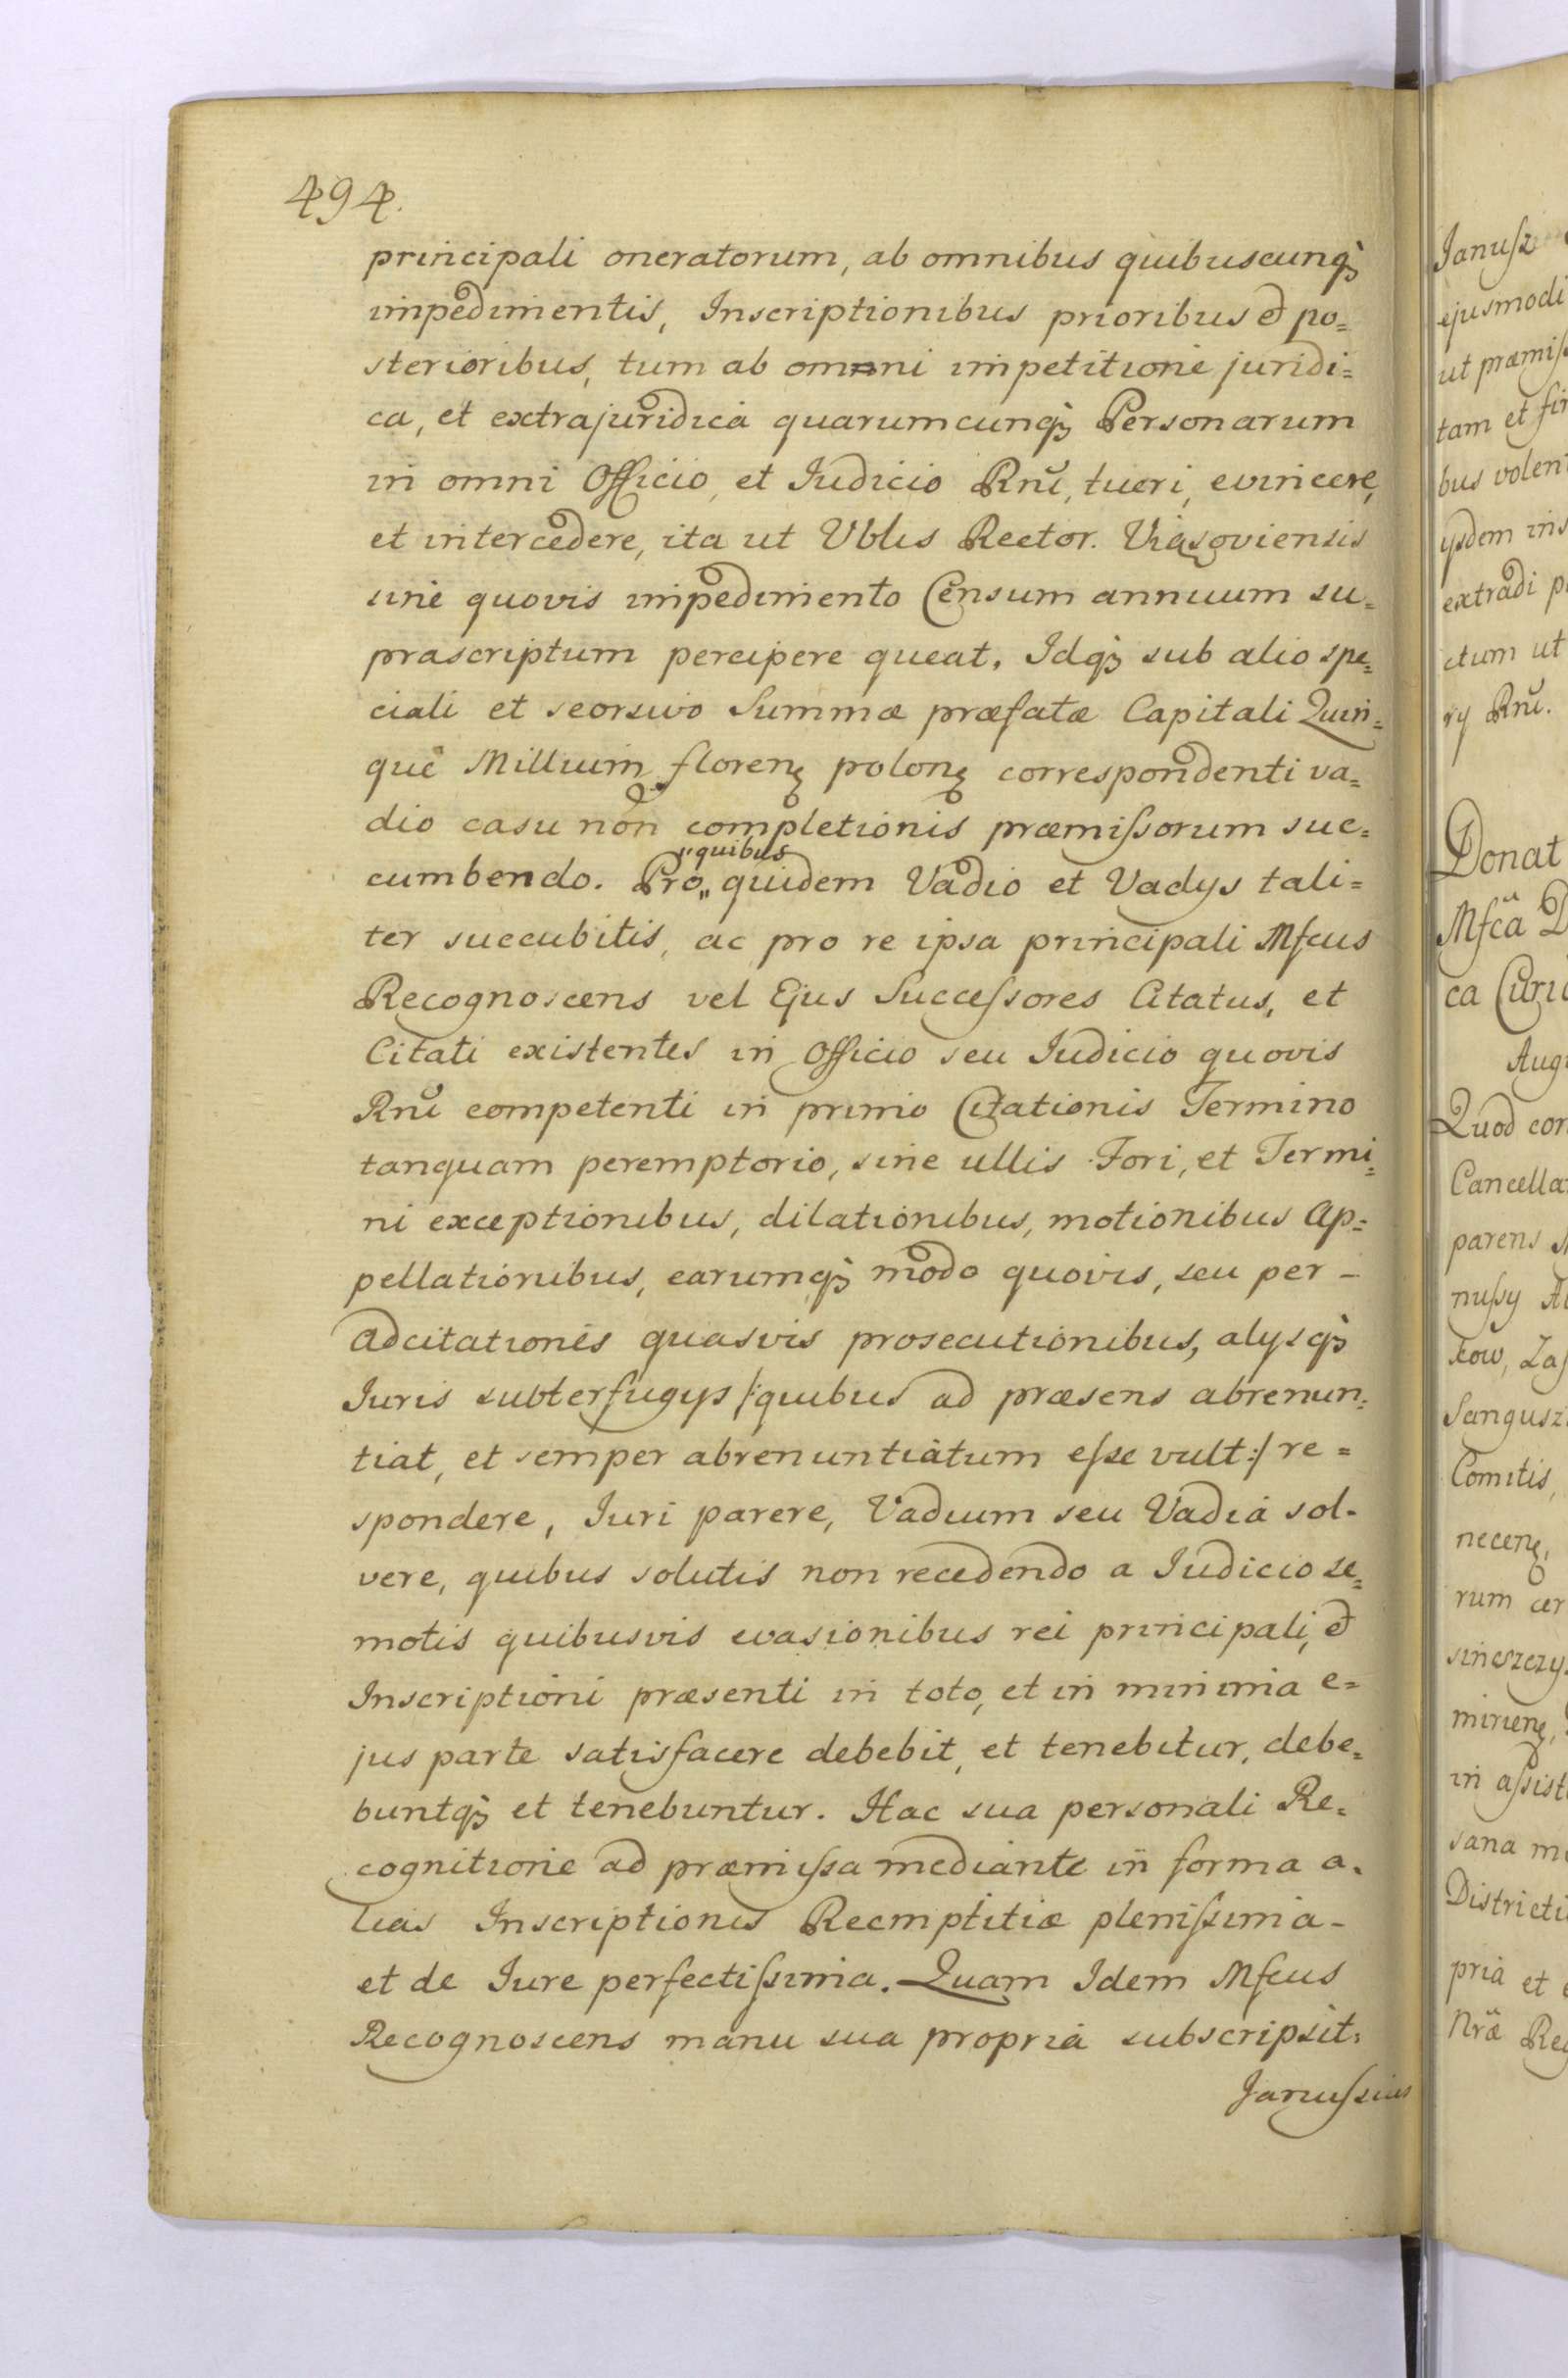 494.
principali oneratorum, ab omnibus quibuscunq̃
impedimentis, Inscriptionibus prioribus et po=
sterioribus, tum ab omni impetitione juridi=
ca, et extrajuridica quarumcunq̃ Personarum
in omni Officio, et Iudicio Rnĩ, tueri, evincere,
et intercedere, ita ut Vblis Rector. Viasoviensis
sine quovis impedimento Censum annuum su=
prascriptum percipere queat. Idq̃ sub alio spe=
ciali et seorsivo Summæ præfatæ Capitali Quin=
que Millium floren polon correspondenti va=
dio casu non completionis præmissorum suc=
cumbendo. Pro „quibus quidem Vadio et Vadys tali=
ter succubitis, ac pro re ipsa principali Mfcus
Recognoscens vel Ejus Successores Citatus, et
Citati existentes in Officio seu Iudicio quovis
Rnĩ competenti in primo Citationis Termino
tanquam peremptorio, sine ullis Fori, et Termi=
ni exceptionibus, dilationibus, motionibus Ap=
pellationibus, earumq̃ modo quovis, seu per-
adcitationes quasvis prosecutionibus, alysq̃
Iuris subterfugys /:quibus ad præsens abrenun=
tiat, et semper abrenuntiatum esse vult:/ re=
spondere, Iuri parere, Vadium seu Vadia sol-
vere, quibus solutis non recedendo a Iudicio se=
motis quibusvis evasionibus rei principali, et
Inscriptioni præsenti in toto, et in minima e=
jus parte satisfacere debebit, et tenebitur, debe=
buntq̃ et tenebuntur. Hac sua personali Re=
cognitione ad præmissa mediante in forma a=
lias Inscriptionis Reemptitiæ plenissima-
et de Iure perfectissima. Quam Idem Mfcus
Recognoscens manu sua propria subscripsit.
Janussius
Janusz
ejusmodi
ut præmiss
tam et fir
bus volen
ysdem ins
extradi p
ctum ut
ry Rnĩ.
Donat
Mfca D
ca Curi
Aug
Quod cor
Cancella
parens
nussy
kow, Zas
Sangusz
Comitis,
necen,
rum cer
sineszczy
mirien,
in assist
sana m
Districti
pria et
Nræ Rec